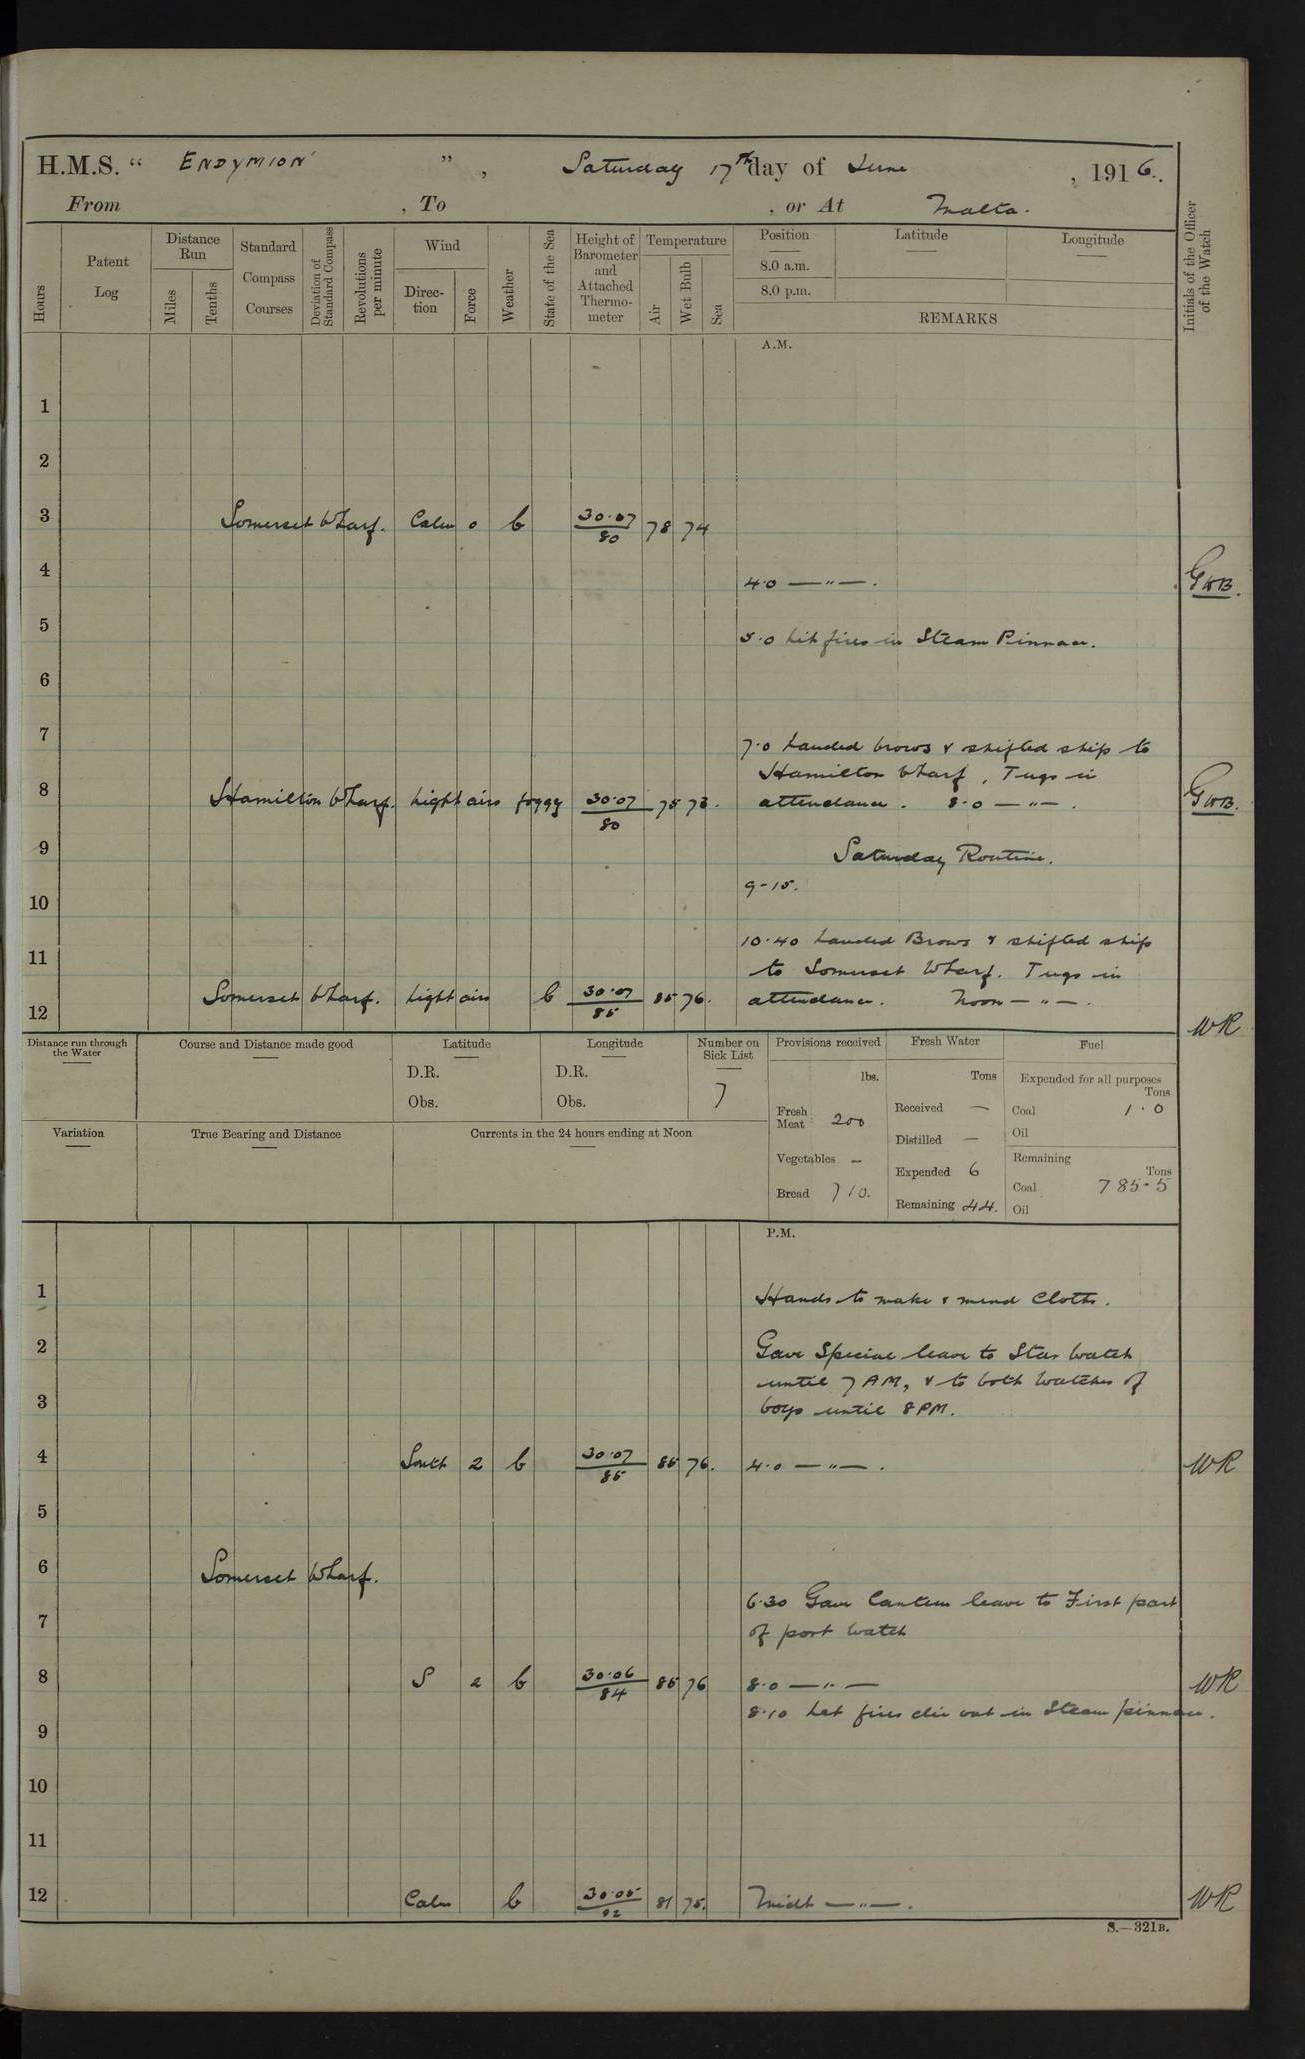 H.M.S. “ ENDYMION ”, Saturday 17th day of June , 1916.
From , To , or At Malta.
Hours
Patent Log
Distance Run
Miles
Tenths
Standard Compass Courses
Deviation of Standard Compass
Revolutions per minute
Wind
Direc-tion
Force
Weather
State of the Sea
Height of Barometer and Attached Thermo-meter
Temperature
Air
Wet Bulb
Sea
Position
8.0 a.m.
8.0 p.m.
Latitude
Longitude
REMARKS
Initials of the Officer of the Watch
A.M.
1
2
3 Somerset Wharf. Calm 0 b 30.07/80 78 74
4 4.0 — " — . GWB.
5 5.0 Lit fires in Steam Pinnace.
6
7 7.0 Landed brows & shifted ship to
Hamilton Wharf, Tugs in
8 Hamilton Wharf. Light airs foggy 30.07/80 75 73. attendance. 8.0 — " — . GWB.
9 Saturday Routine.
9-15.
10
10.40 Landed Brows & shifted ship
11 to Somerset Wharf. Tugs in
12 Somerset Wharf. Light airs b 30.07/85 85 76. attendance. Noon — " — . WR
Distance run through the Water
Course and Distance made good
Latitude
D.R.
Obs.
Longitude
D.R.
Obs.
Number on Sick List
7
Provisions received
lbs.
Fresh Meat 200
Vegetables —
Bread 710.
Fresh Water
Tons
Received —
Distilled —
Expended 6
Remaining 44.
Fuel
Expended for all purposes
Tons
Coal 1.0
Oil
Remaining
Tons
Coal 785.5
Oil
Variation
True Bearing and Distance
Currents in the 24 hours ending at Noon
P.M.
1 Hands to make & mend Cloths.
2 Gave Special leave to Star Watch
until 7 AM, & to both Watches of
3 boys until 8 PM.
4 South 2 b 30.07/85 85 76. 4.0 — " — . WR
5
6 Somerset Wharf.
6.30 Gave Canteen leave to First part
7 of port Watch
8 S 2 b 30.06/84 85 76 8.0 — " — WR
8.10 Let fires die out in Steam pinnace.
9
10
11
12 Calm b 30.05/82 81 75. Midt — " — . WR
S.—321B.